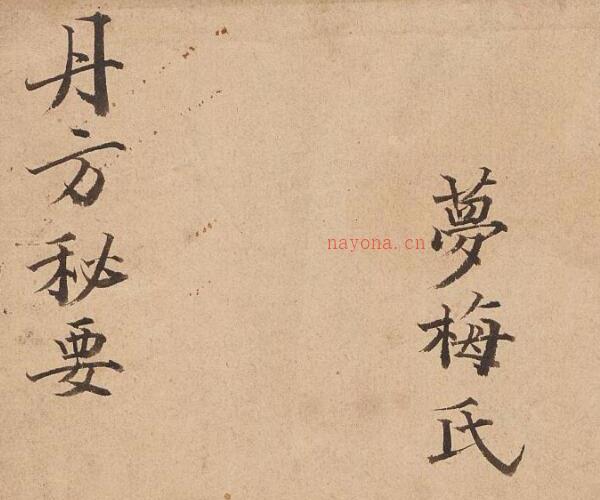 夢梅氏
nayona.cn
丹方秘要